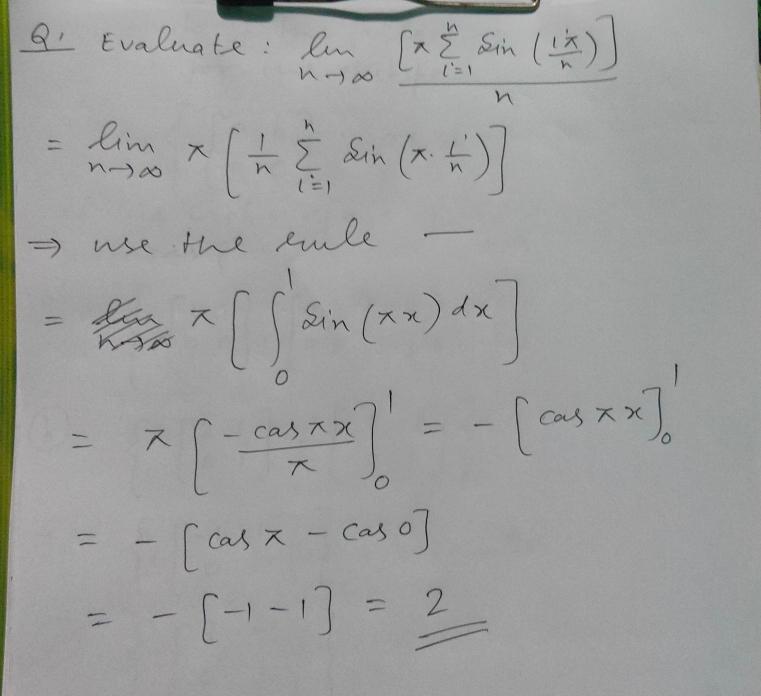 Q. Evaluate : lim n→∞ [π Σ_{i=1}^{n} Sin (iπ/n)] / n
= lim n→∞ π [1/n Σ_{i=1}^{n} Sin (π · i/n)]
⇒ use the rule —
= π [∫_0^1 Sin (πx) dx]
= π [- cos πx / π]_0^1 = - [cos πx]_0^1
= - [cos π - cos 0]
= - [-1 - 1] = 2